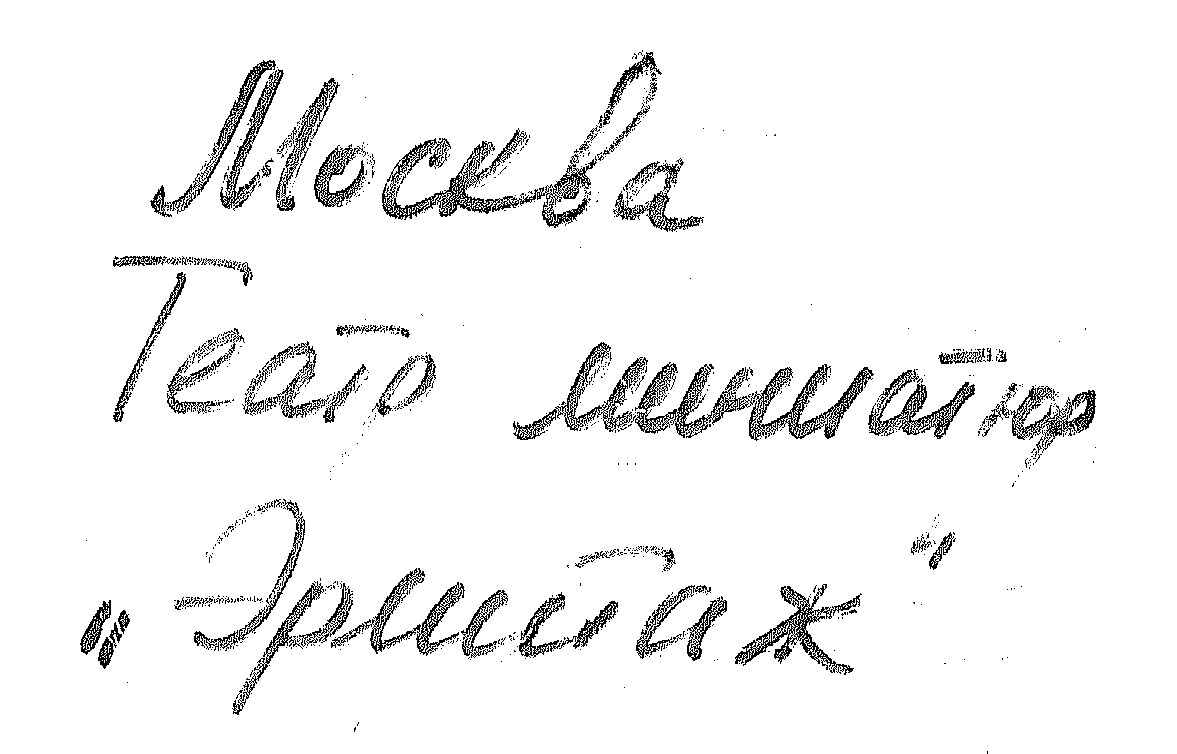 Москва
Театр миниатюр
„Эрмитаж“